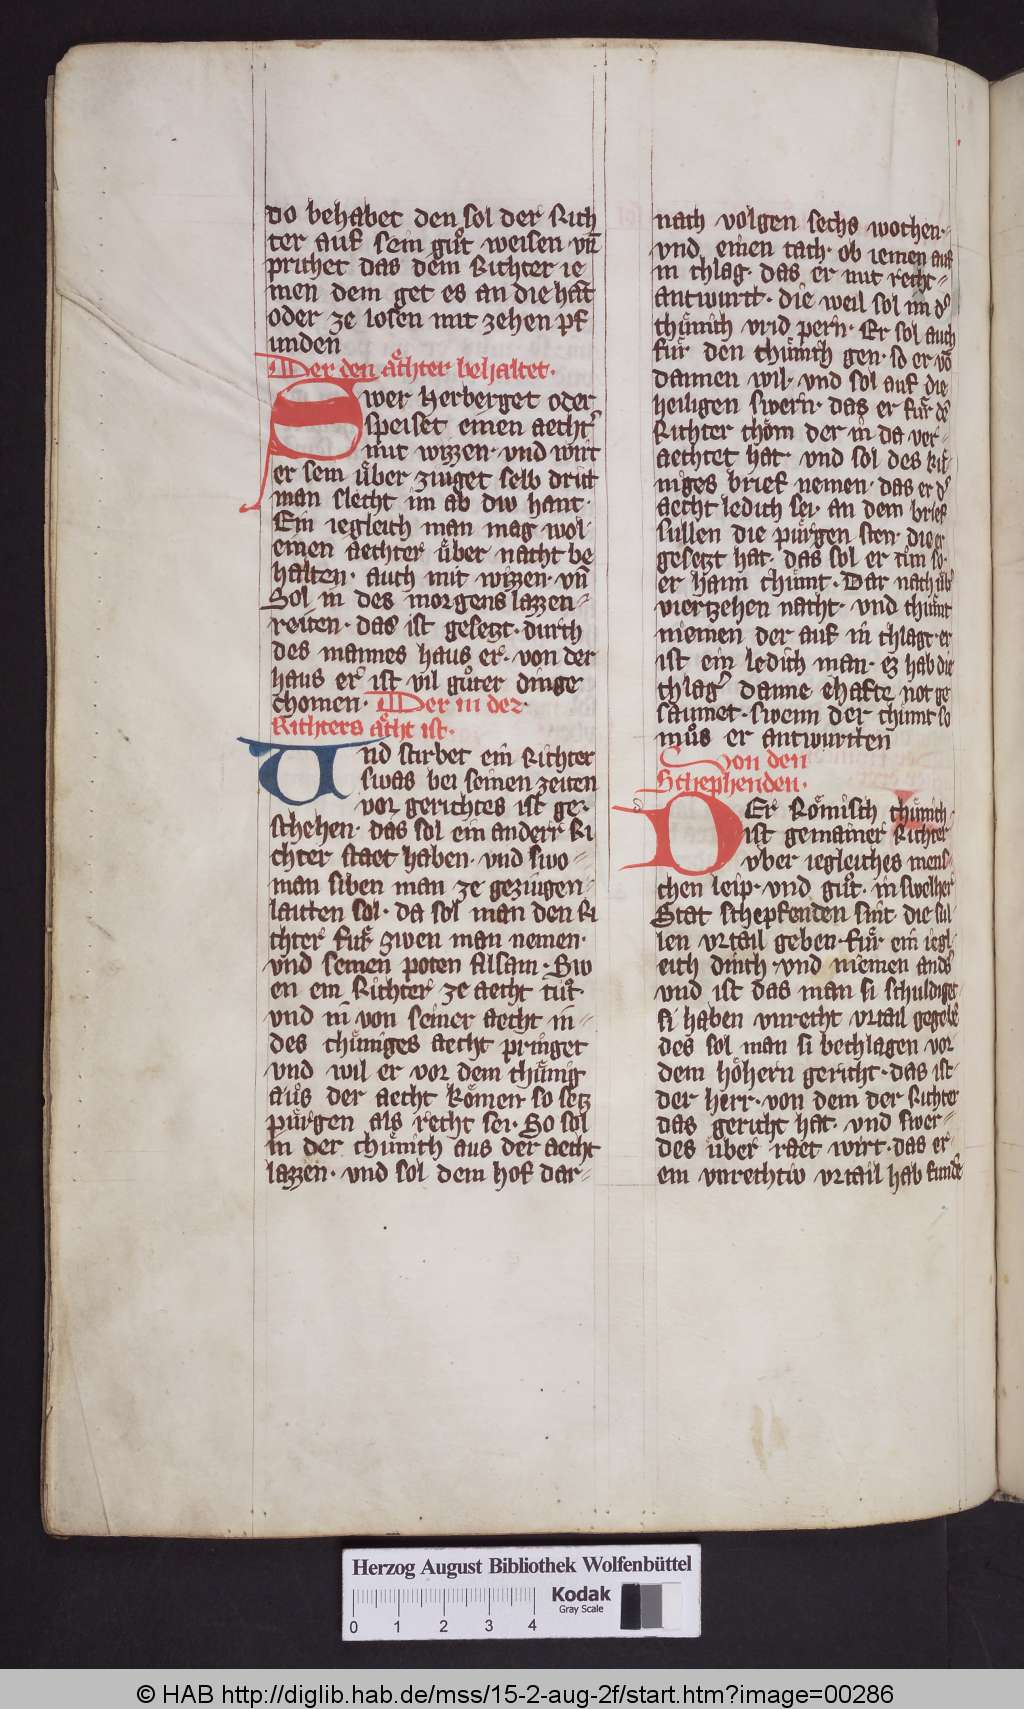 do behabet den sol der Rich
ter auf sein guͦt weisen vn̄
prichet das dem Richter ie
men dem get es an die hāt
oder ze losen mit zehen pf
unden
Der den aͤchter behaltet·
Swer Herberget oder
speiset einen aecht͛
mit wizzen· vnd wirt
er sein uͤber ziuget selb drit
man slecht im ab diw hant·
Ein iegleich man mag wol
einen aechter uͤber nacht be
halten· auch mit wizzen· vn̄
Sol in des morgens lazzen
reiten· das ist gesetzt· durch
des mannes haus er· von der
haus er ist vil guͦter dinge
chomen· Der in der
Richters aͤcht ist·
Und stirbet ein Richter
swas bei seinen zeiten
vor gerichtes ist ge
schehen· das sol ein anderr Ri
chter staet haben· vnd swo
man siben man ze geziugen
laitten sol· da sol man den Ri
chter fuͤr zwen man nemen·
vnd seinen poten Alsam· Sw
en ein Richter ze aecht tuͦt·
vnd in von seiner aecht in
des chuͤniges aecht pringet
vnd wil er vor dem chuͤnig
auͤs der aecht koͤmen so setz
puͤrgen als recht sei· So sol
in der chuͤnich aus der aecht
lazzen· vnd sol dem hof dar
nach volgen sechs wochen·
vnd einen tach· ob iemen auf
in chlag· das er mit recht
antwurtt· die weil sol im d͛
chuͤnich vrid pern· Er sol auch
fuͤr den chuͤnich gen· so er vō
dannen wil· vnd sol auf die
heiligen swern· das er fuͤr dē
Richter choͤm der in da ver
aechtet hat· vnd sol des kuͤ
niges brief nemen· das er d͛
aecht ledich sei· an dem brief
sullen die puͤrgen sten· die er
gesetzt hat· das sol er tun so
er haim chuͤmt· Dar nach uͤb͛
viertzehen nacht· vnd chuͤmt
niemen der auf in chlagt· er
ist ein ledich man· ez hab die
chlag͛ danne ehafte not ge
saumet· swenn der chumt so
muͦs er antwurtten
Von den
Schephenden·
DEr Roͤmisch chuͤnich·
ist gemainer Richter
vber iegleiches mens
chen leip· vnd guͦt· in swelher
Stat schepfenden sint· die sul
len vrtail geben· fuͤr ein iegl
eich dinch· vnd niemen and͛s
vnd ist das man si schuldiget
si haben vnrecht vrtail gegebē
des sol man si bechlagen vor
dem hoͤhern gericht· das ist
der herr· von dem der Richter
das gericht hat· vnd swer
des uber raet wirt· das er
ein vnrechtiw vrtail hab fundē
Herzog August Bibliothek Wolfenbüttel
Kodak
Gray Scale
0 1 2 3 4
© HAB http://diglib.hab.de/mss/15-2-aug-2f/start.htm?image=00286